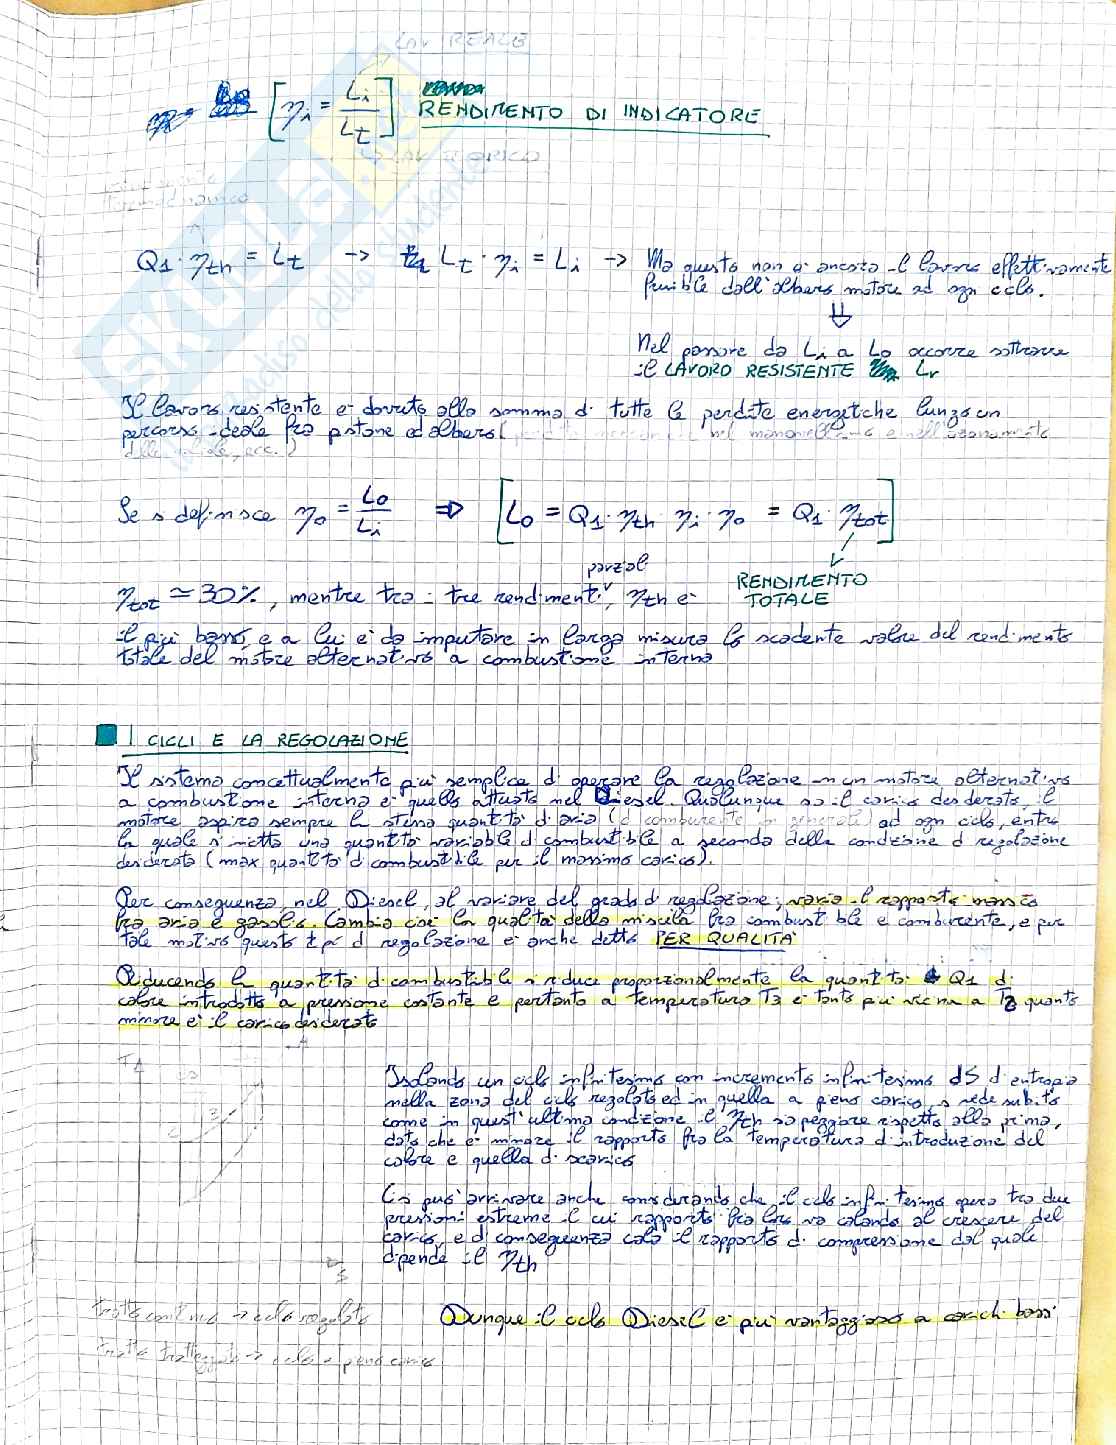 LAV. REALE
[ηi = Li / Lt] RENDIMENTO DI INDICATORE
LAV. TEORICO
rendimento
termodinamico
Q1 · ηth = Lt → Lt · ηi = Li → Ma questo non è ancora il lavoro effettivamente
fruibile dall'albero motore ad ogni ciclo.
⇓
Nel passare da Li a Lo occorre sottrarre
il LAVORO RESISTENTE Lr
Il lavoro resistente è dovuto alla somma di tutte le perdite energetiche lungo un
percorso ideale fra pistone ed albero (perdite meccaniche nel manovellismo e nell'azionamento
delle valvole, ecc.)
Se si definisce ηo = Lo / Li ⇒ [Lo = Q1 · ηth · ηi · ηo = Q1 · ηtot]
RENDIMENTO
TOTALE
parziali
ηtot ≃ 30%, mentre tra i tre rendimenti, ηth è
il più basso, e a lui è da imputare in larga misura lo scadente valore del rendimento
totale del motore alternativo a combustione interna
I CICLI E LA REGOLAZIONE
Il sistema concettualmente più semplice di operare la regolazione in un motore alternativo
a combustione interna è quello attuato nel Diesel. Qualunque sia il carico desiderato, il
motore aspira sempre la stessa quantità d'aria (o comburente in generale) ad ogni ciclo, entro
la quale si inietta una quantità variabile di combustibile a seconda della condizione di regolazione
desiderata (max quantità di combustibile per il massimo carico).
Per conseguenza, nel Diesel, al variare del grado di regolazione, varia il rapporto massico
fra aria e gasolio. Cambia cioè la qualità della miscela fra combustibile e comburente, e per
tale motivo questo tipo di regolazione è anche detto PER QUALITÀ
Riducendo la quantità di combustibile si riduce proporzionalmente la quantità Q1 di
calore introdotto a pressione costante e pertanto la temperatura T3 è tanto più vicina a T2 quanto
minore è il carico desiderato
T
3
2
S
Isolando un ciclo infinitesimo con incremento infinitesimo dS di entropia
nella zona del ciclo regolato ed in quella a pieno carico, si vede subito
come in quest'ultima condizione il ηth sia peggiore rispetto alla prima,
dato che è minore il rapporto fra la temperatura di introduzione del
calore e quella di scarico
Ci si può arrivare anche considerando che il ciclo infinitesimo opera tra due
pressioni estreme il cui rapporto fra loro va calando al crescere del
carico, e di conseguenza cala il rapporto di compressione dal quale
dipende il ηth
tratto continuo → ciclo regolato
tratto tratteggiato → ciclo a pieno carico
Dunque il ciclo Diesel è più vantaggioso a carichi bassi